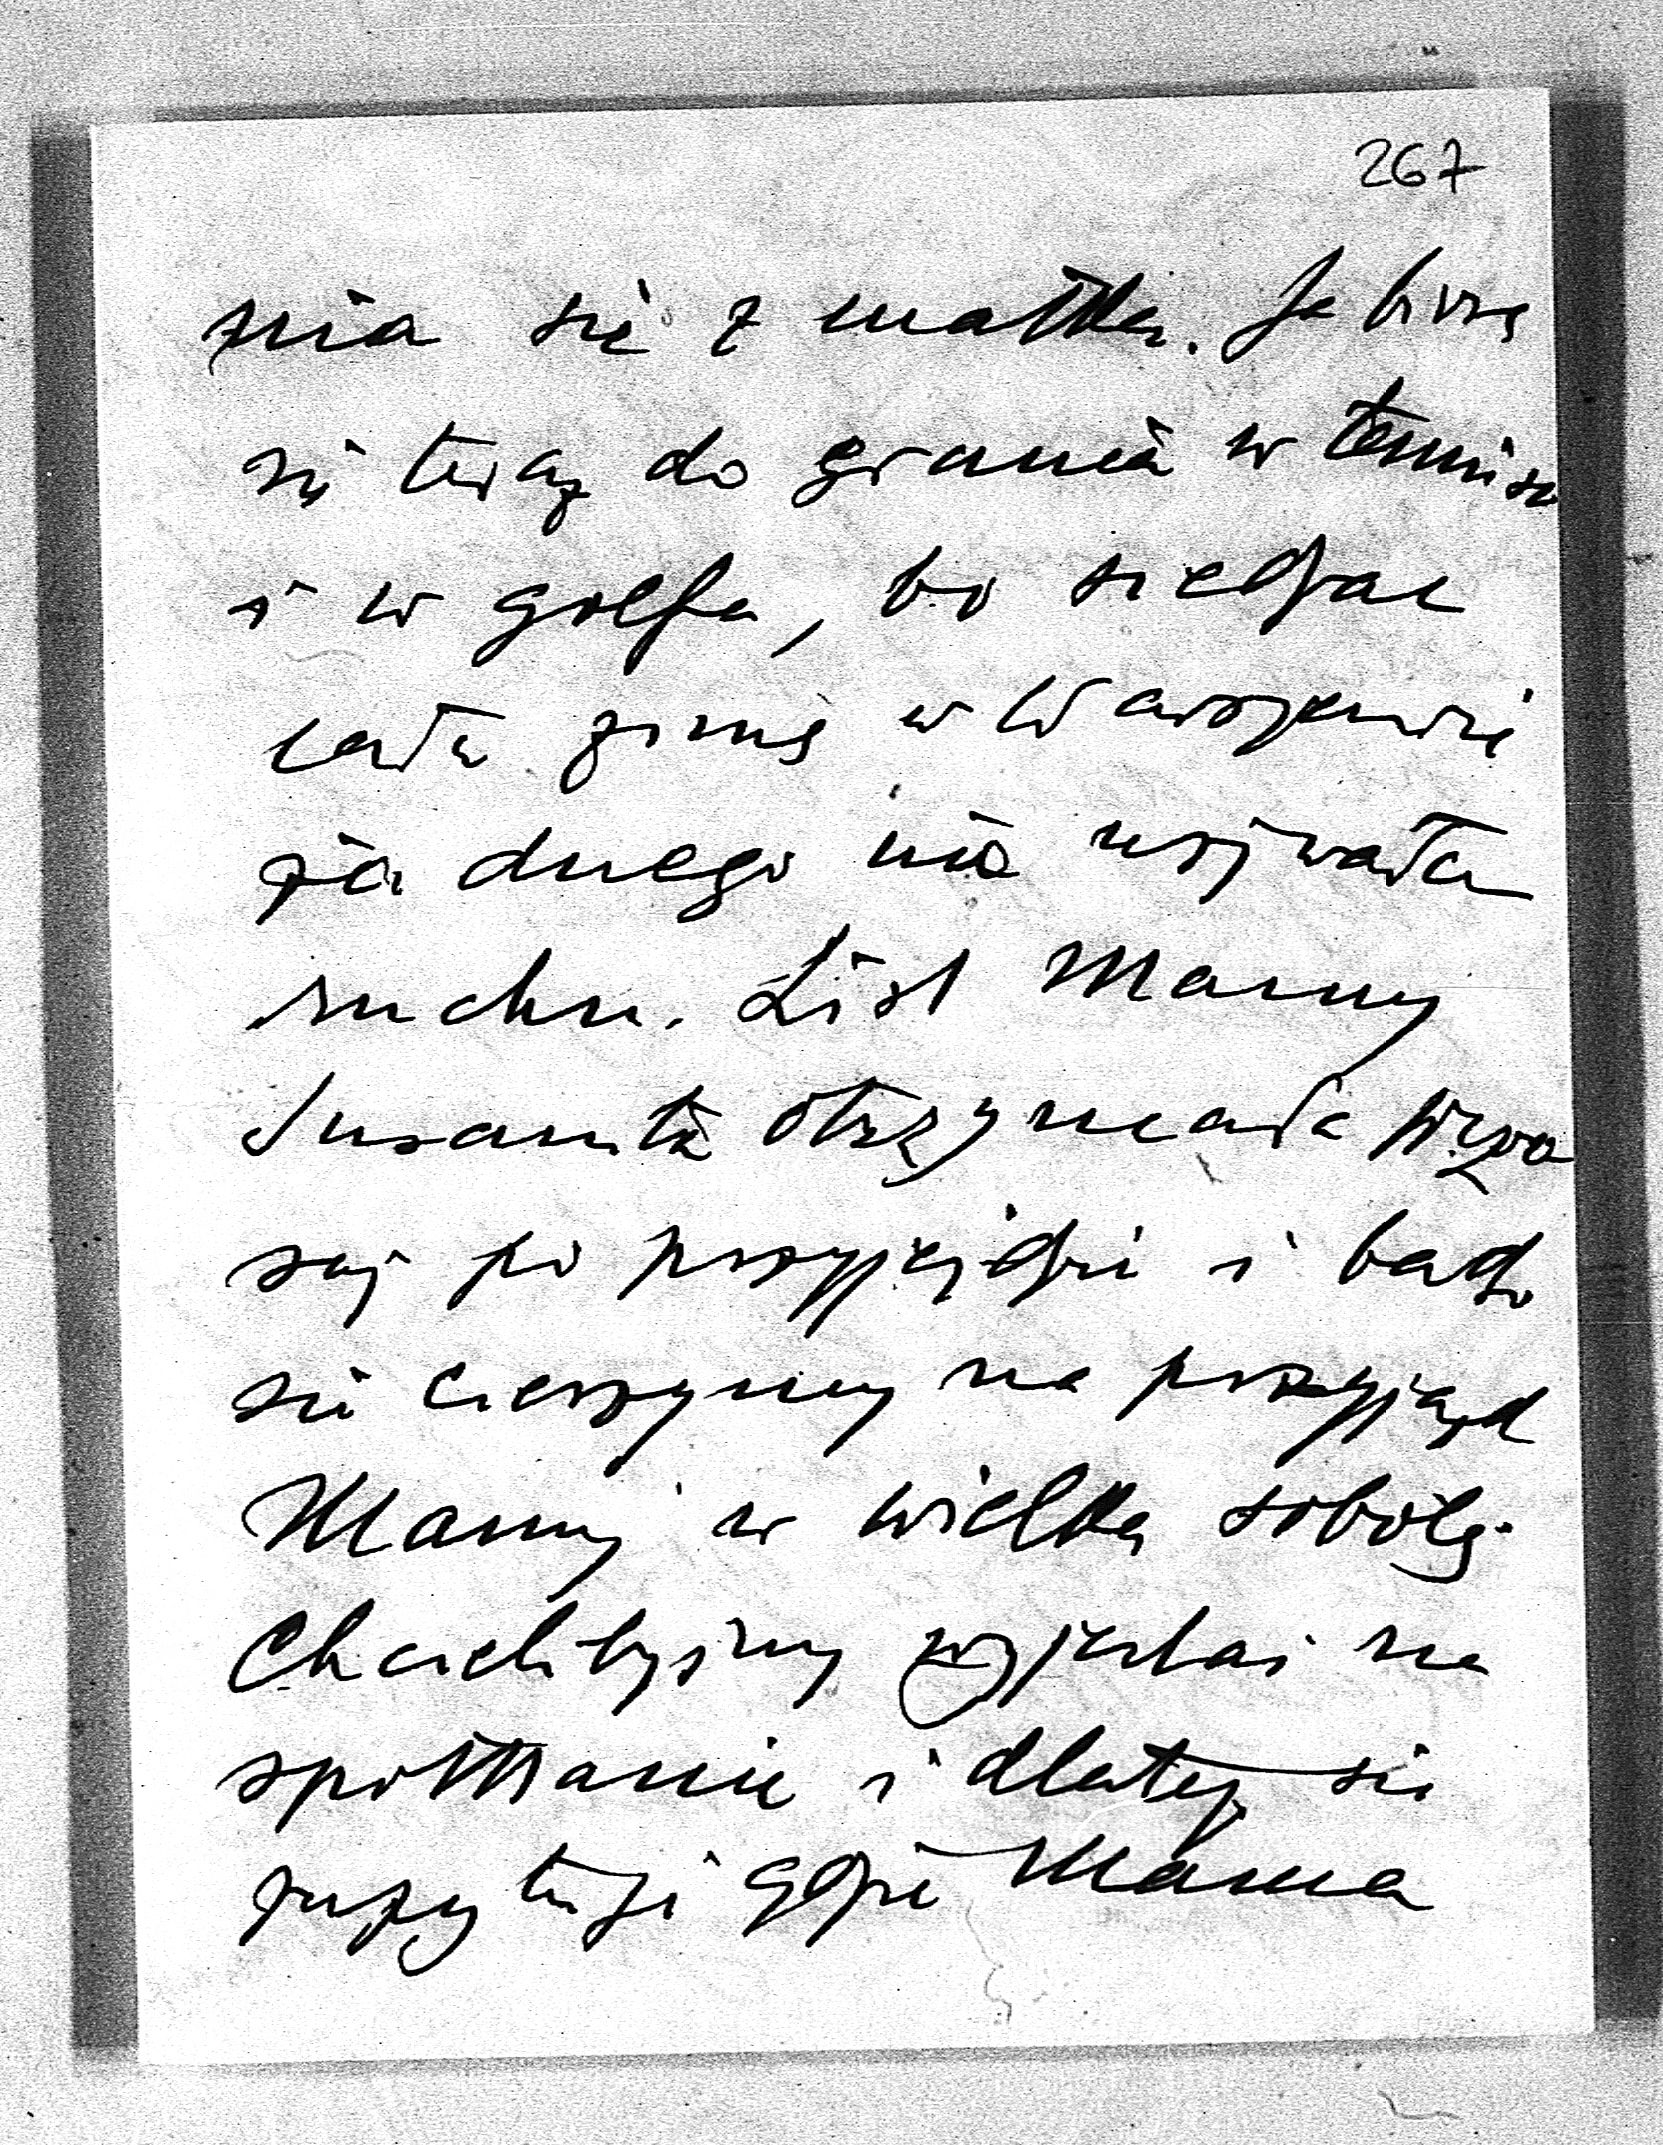 267
znia się z matką. Ja biorę
się teraz do grania w tennisa
i w golfa, bo siedząc
całą zimę w Warszawie
żadnego nie używałam
ruchu. List Mamy
otrzymała wczo
raj po przyjeździe i bardzo
się cieszymy na przyjazd
Mamy w wielką sobotę.
Chcielibyśmy wyjechać na
spotkanie i dlatego się
zapytuję gdzie Mama